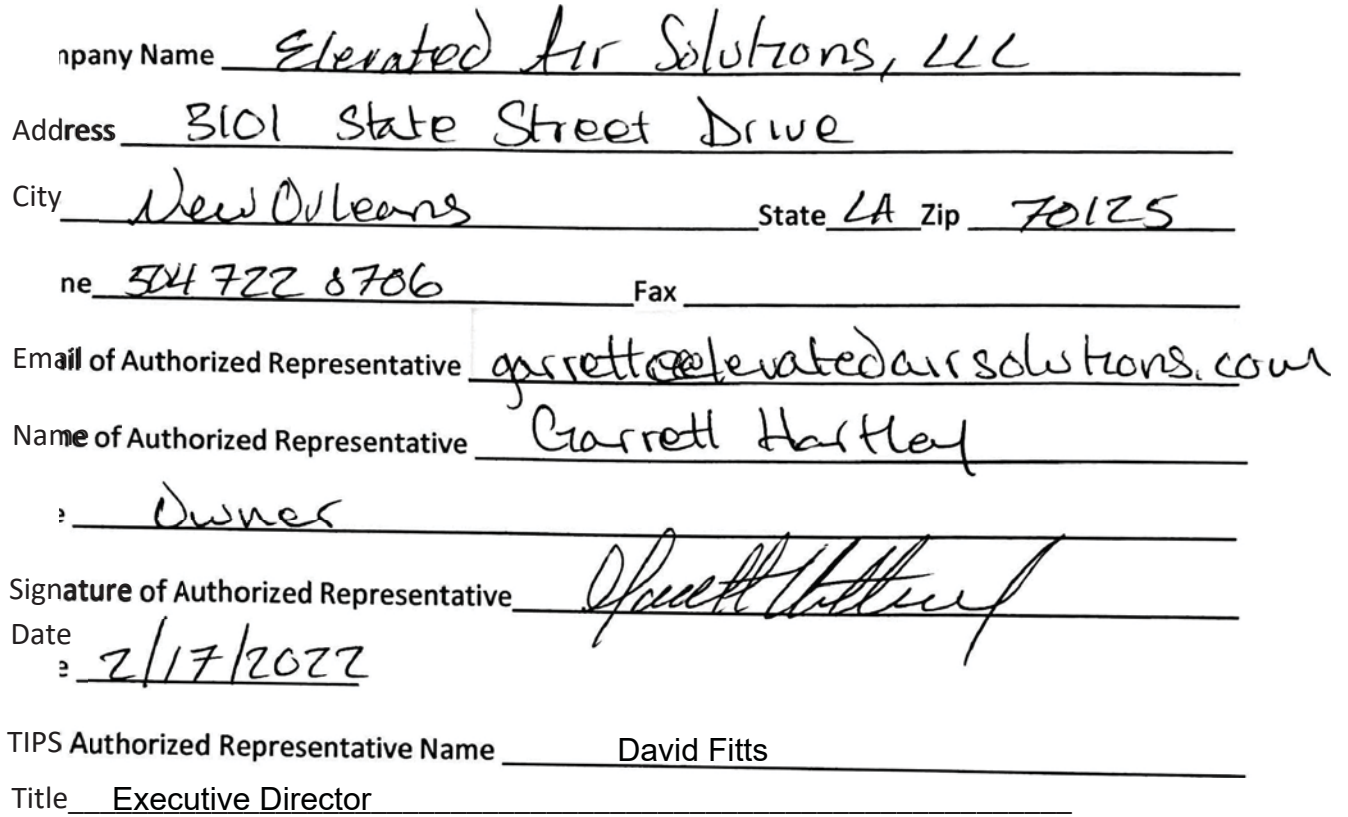 npany Name Elevated Air Solutions, LLC
Address 3101 State Street Drive
City New Orleans State LA Zip 70125
ne 504 722 8706 Fax
Email of Authorized Representative garrett@elevatedairsolutions.com
Name of Authorized Representative Garrett Hartley
e Owner
Signature of Authorized Representative Garrett Hartley
Date
e 2/17/2022
TIPS Authorized Representative Name David Fitts
Title Executive Director